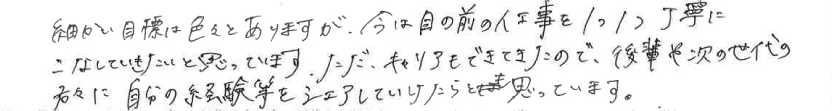 細かい目標は色々とありますが、今は目の前の仕事を1つ1つ丁寧に
こなしていきたいと思っています。ただ、キャリアもできてきたので、後輩や次の世代の
方々に自分の経験等をシェアしていけたらと思っています。